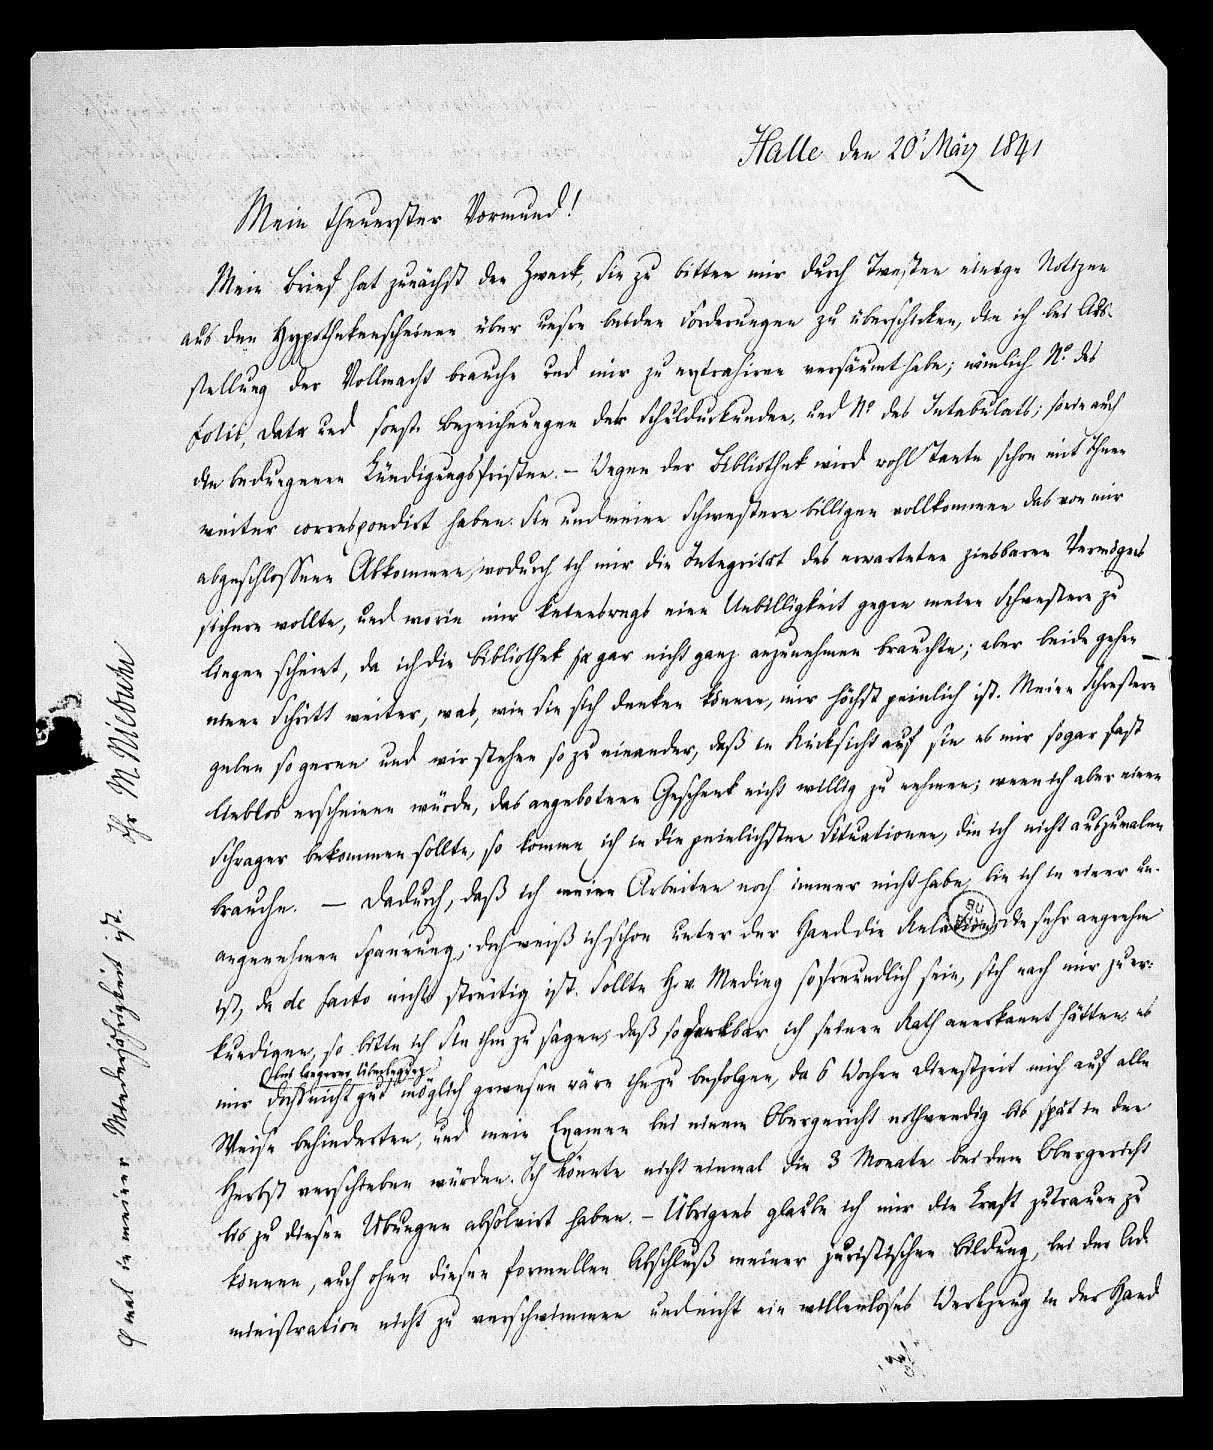 Halle den 20t März 1841
Mein theuerster Vormund!
Mein Brief hat zunächst den Zweck, Sie zu bitten mir durch Twesten einige Notizen
aus den Hypothekenscheinen über unsre beiden Forderungen zu überschicken, die ich bei Aus-
stellung der Vollmacht brauche und mir zu extrahiren versäumt habe; nämlich No. des
Folii, Data und sonst. Bezeichnungen der Schuldurkunden, und No des Intabulats; sowie auch
die bedungenen Kündigungsfristen. – Wegen der Bibliothek wird wohl Tante schon mit Ihnen
weiter correspondirt haben. Sie und meine Schwestern billigen vollkommen das von mir
abgeschlossene Abkommen, wodurch ich mir die Integrität des erwarteten zinsbaren Vermögens
sichern wollte, und worin mir keineswegs eine Unbilligkeit gegen meine Schwestern zu
liegen scheint, da ich die Bibliothek ja gar nicht ganz anzunehmen brauchte; aber beide gehen
einen Schritt weiter, was, wie Sie sich denken können, mir höchst peinlich ist. Meine Schwestern
geben so gerne und wir stehen so zu einander, daß in Rücksicht auf sie es mir sogar fast
lieblos erscheinen würde, das angebotene Geschenk nicht willig zu nehmen; wenn ich aber einen
Schwager bekommen sollte, so komme ich in die peinlichsten Situationen, die ich nicht auszumalen
brauche. — Dadurch, daß ich meine Arbeiten noch immer nicht habe, bin ich in einer un-
angenehmen Spannung; doch weiß ich schon unter der Hand die Relation, die sehr angenehm
ist, da de facto nichts streitig ist. Sollte H. v. Meding so freundlich sein, sich nach mir zu er-
kundigen, so bitte ich Sie ihm zu sagen, daß so dankbar ich seinen Rath anerkannt hätte, es
bei längerer Überlegung
mir doch nicht gut möglich gewesen wäre ihn zu befolgen, da 6 Wochen Dienstzeit mich auf alle
Weise behinderten, und mein Examen bei einem Obergericht nothwendig bis spät in den
Herbst verschieben würden. Ich könnte nicht einmal die 3 Monate bei dem Obergericht
bis zu diesen Übungen absolvirt haben. – Übrigens glaube ich mir die Kraft zutrauen zu
können, auch ohne diesen formellen Abschluß meiner juristischen Bildung, bei der Ad-
ministration nicht zu verschwimmen und nicht ein willenloses Werkzeug in der Hand
mal in meiner Minderjährigkeit ist. Ihr M. Niebuhr